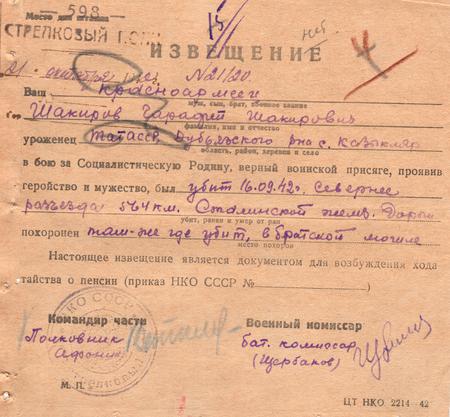 Место для штампа
— 598 —
СТРЕЛКОВЫЙ П
15
нет.
4
ИЗВЕЩЕНИЕ
21 октября №21/20.
Ваш красноармеец
муж, сын, брат, военное звание
Шакиров Гарафет Шакирович
фамилия, имя и отчество
уроженец Татасср, Дубъязского р-на с. Казыклар
область, район, деревня и село
в бою за Социалистическую Родину, верный воинской присяге, проявив
геройство и мужество, был убит 16.09.42г. Севернее
разъезда 564 км. Сталинской желез. Дороги
убит, ранен и умер от ран
похоронен там-же где убит, в братской могиле
место похорон
Настоящее извещение является документом для возбуждения хода
тайства о пенсии (приказ НКО СССР № )
НКО СССР
Командир части
Военный комиссар
Полковник
Афонин
бат. комиссар
(Щербаков)
М. П.
ЦТ НКО 2214—42